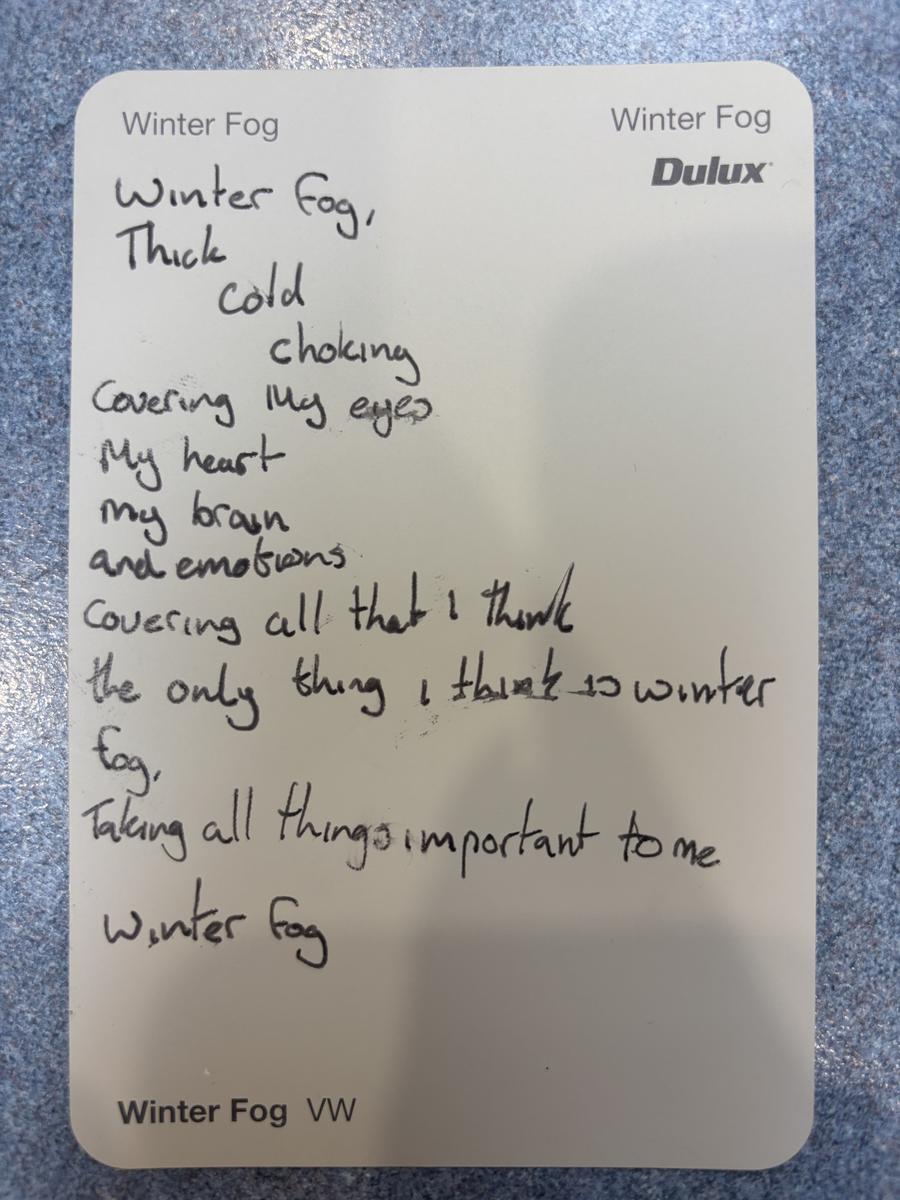 Winter Fog
Winter Fog
Dulux
Winter Fog,
Thick
cold
choking
Covering My eyes
My heart
my brain
and emotions
Covering all that I think
the only thing i think is winter
fog,
Taking all things important to me
Winter Fog
Winter Fog VW